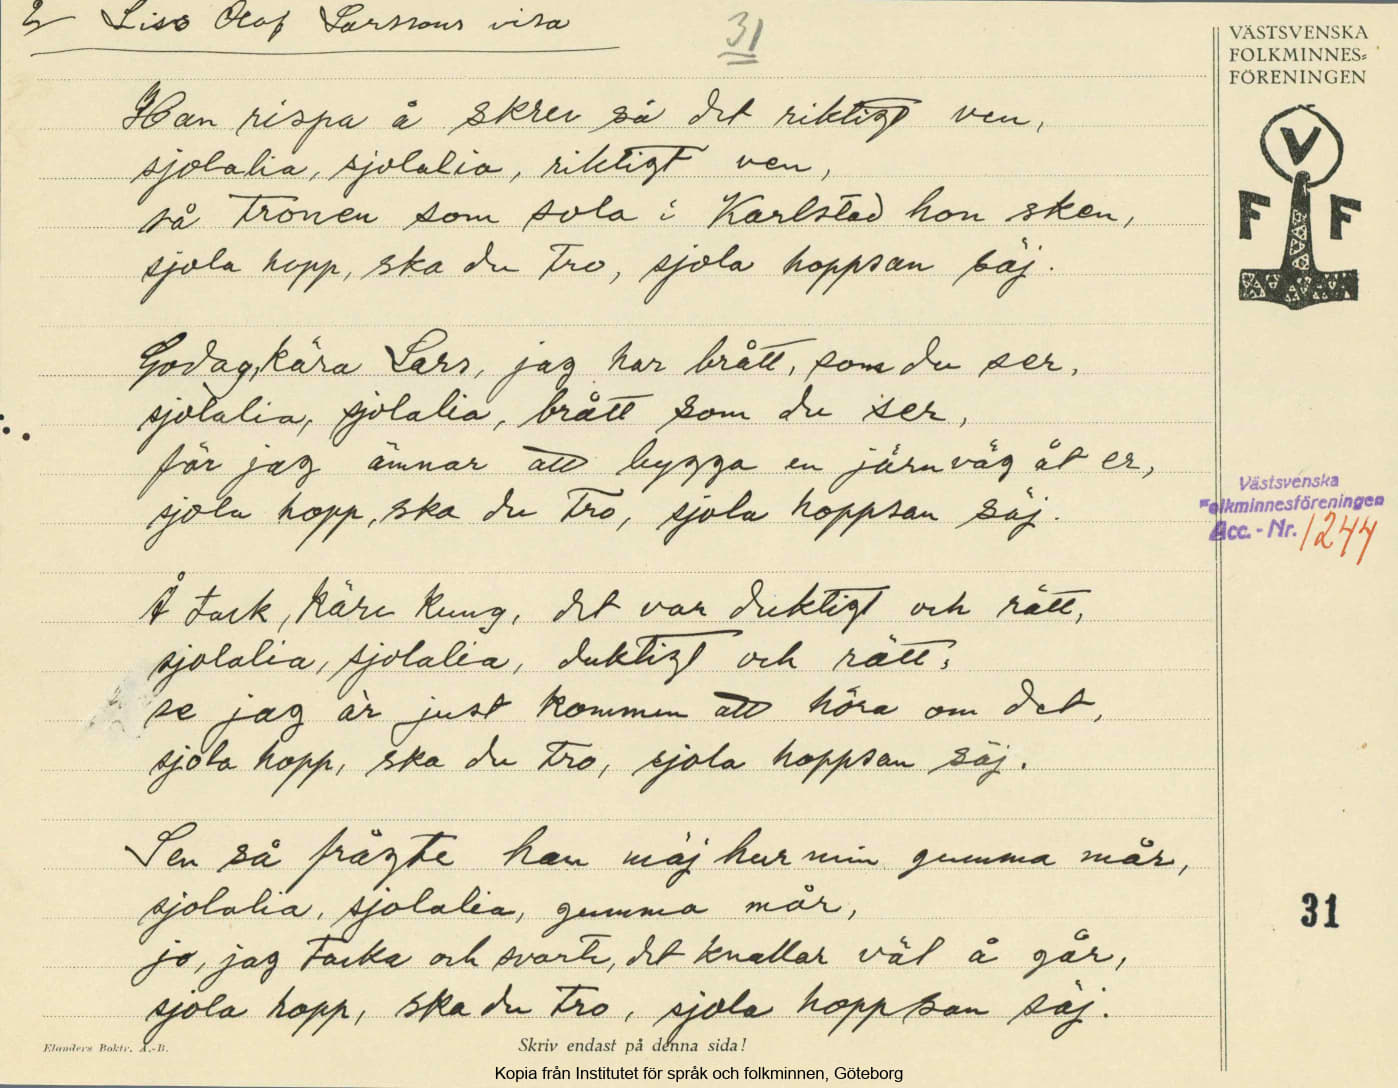 2 Liss Olof Larssons visa
31
VÄSTSVENSKA
FOLKMINNES=
FÖRENINGEN
V
F F
Han rispa å skrev så det riktigt ven,
sjolalia, sjolalia, riktigt ven,
så tronen som sola i Karlstad hon sken,
sjola hopp, ska du tro, sjola hoppsan säj.
Godag, kära Lars, jag har brått, som du ser,
sjolalia, sjolalia, brått som du ser,
för jag ämnar att bygga en järnväg åt er,
sjola hopp, ska du tro, sjola hoppsan säj.
Å tack, käre kung, det var duktigt och rätt,
sjolalia, sjolalia, duktigt och rätt,
se jag är just kommen att höra om det,
sjola hopp, ska du tro, sjola hoppsan säj.
Sen så frågte han mäj hur min gumma mår,
sjolalia, sjolalia, gumma mår,
jo, jag tacka och svarte, det knallar väl å går,
sjola hopp, ska du tro, sjola hoppsan säj.
Västsvenska
Folkminnesföreningen
Acc.-Nr. 1244
31
Elanders Boktr. A.-B.
Skriv endast på denna sida!
Kopia från Institutet för språk och folkminnen, Göteborg